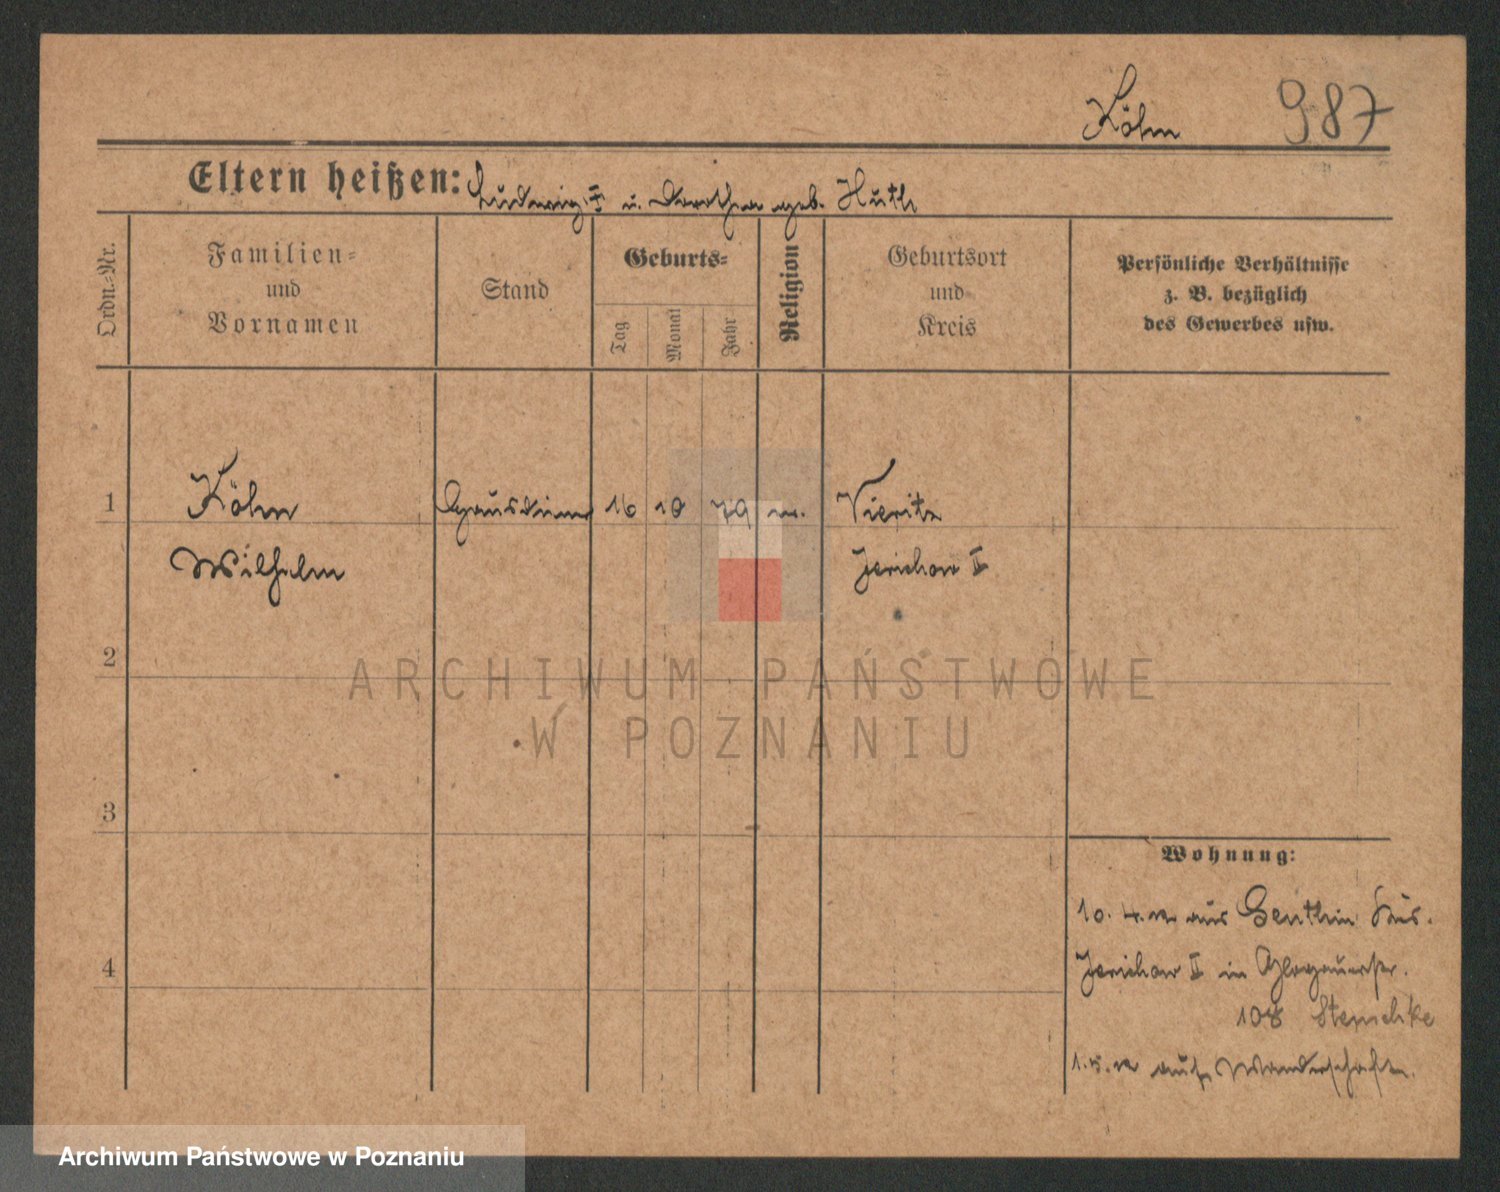 Köhn 987
Eltern heißen: Ludwig † u. Dorothea geb. Huth
Ordn.-Nr.
Familien-
und
Vornamen
Stand
Geburts-
Tag
Monat
Jahr
Religion
Geburtsort
und
Kreis
Persönliche Verhältnisse
z. B. bezüglich
des Gewerbes usw.
1 Köhn 16 10 79 Vieritz
Wilhelm Jerichow II
2
3
4
Wohnung:
10. 4. aus Genthin Krs.
Jerichow II in Glogauerstr.
108 Stenschke
auf Wanderschaft.
ARCHIWUM PAŃSTWOWE
W POZNANIU
Archiwum Państwowe w Poznaniu